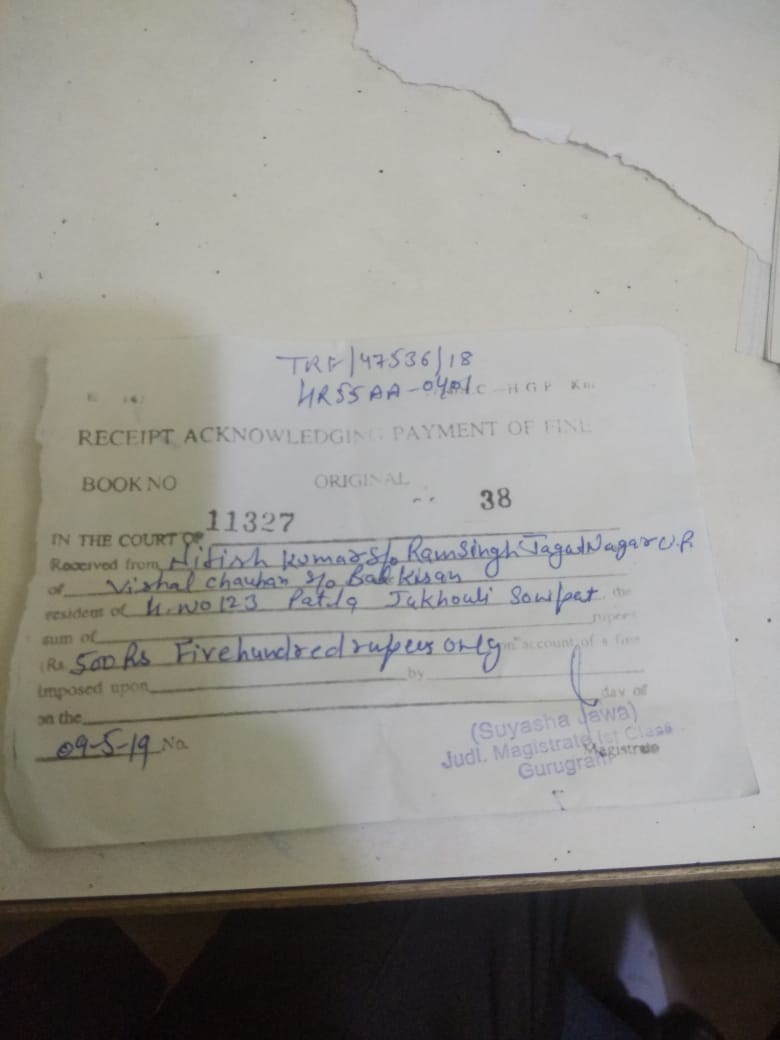 TRF/47536/18
HR55AA-0401 C-HGP
RECEIPT ACKNOWLEDGING PAYMENT OF FINE
BOOK NO ORIGINAL
11327 38
IN THE COURT OF
Received from Nitish Kumar S/o Ram Singh Jagat Nagar U.P.
of Vishal Chauhan S/o Bal Kisan
resident of H.NO 123 Jakhouli Sonipat the
sum of rupees
(Rs. 500 Rs Five hundred rupees only on account of a fine
imposed upon by
on the day of
09-5-19 No.
(Suyasha Jawa)
Judl. Magistrate Ist Class
Magistrate
Gurugram